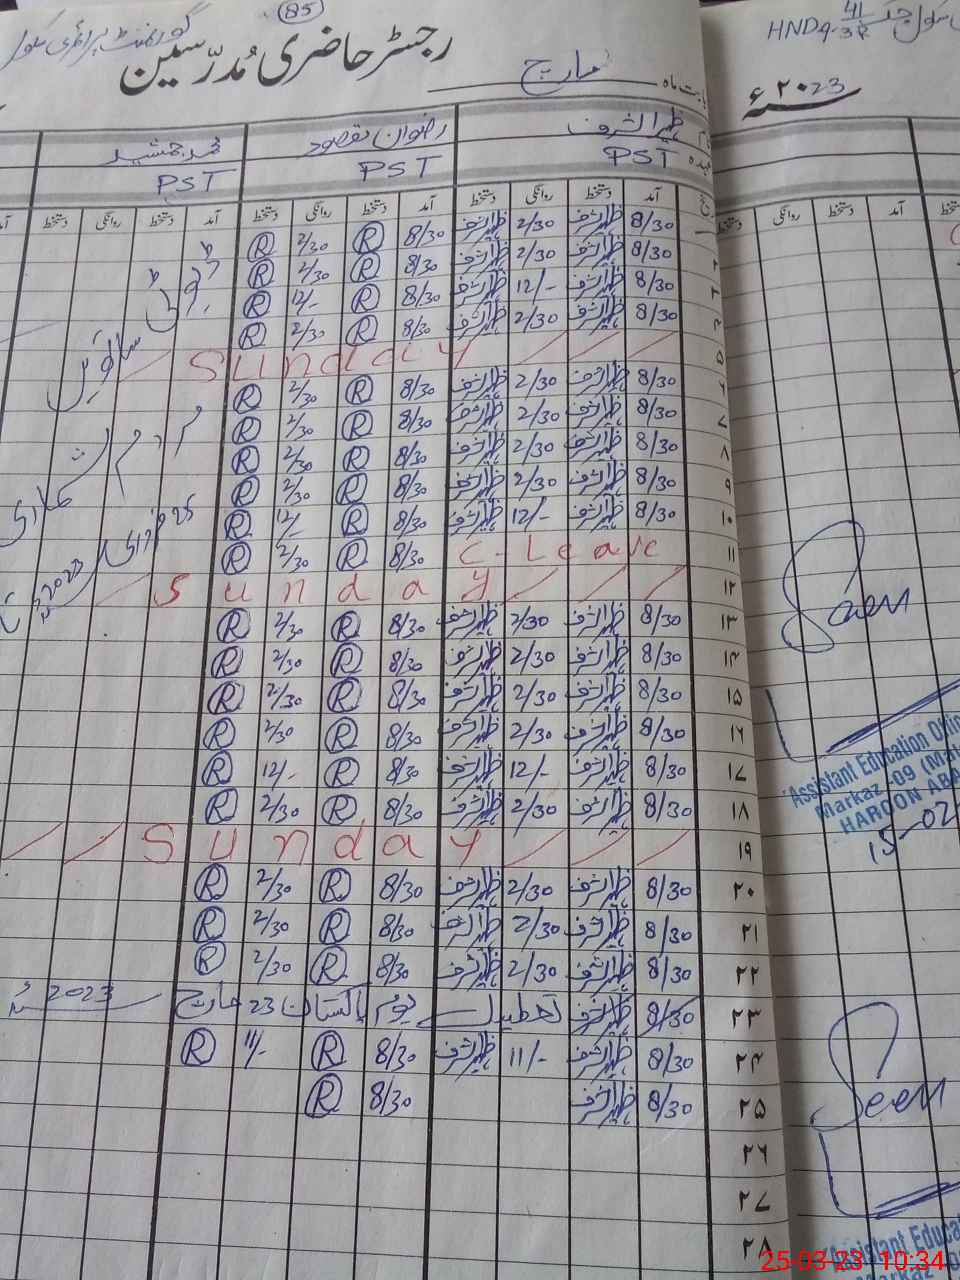 85
گورنمنٹ پرائمری سکول
HND 41 چک
رجسٹر حاضری مُدرّسین
بابت ماہ مارچ
۲۰23ء
ظہیر اشرف رضوان مقصود محمد جمشید
PST PST PST
آمد دستخط روانگی دستخط آمد دستخط روانگی دستخط آمد دستخط روانگی دستخط
۱ 8/30 ظہیر اشرف 2/30 ظہیر اشرف 8/30 R 2/30 R
۲ 8/30 ظہیر اشرف 2/30 ظہیر اشرف 8/30 R 2/30 R
۳ 8/30 ظہیر اشرف 12/- ظہیر اشرف 8/30 R 12/- R
۴ 8/30 ظہیر اشرف 2/30 ظہیر اشرف 8/30 R 2/30 R
۵ Sunday
۶ 8/30 ظہیر اشرف 2/30 ظہیر اشرف 8/30 R 2/30 R
۷ 8/30 ظہیر اشرف 2/30 ظہیر اشرف 8/30 R 2/30 R
۸ 8/30 ظہیر اشرف 2/30 ظہیر اشرف 8/30 R 2/30 R
۹ 8/30 ظہیر اشرف 2/30 ظہیر اشرف 8/30 R 2/30 R
۱۰ 8/30 ظہیر اشرف 12/- ظہیر اشرف 8/30 R 12/- R
۱۱ C-Leave 8/30 R 2/30 R
۱۲ Sunday
۱۳ 8/30 ظہیر اشرف 2/30 ظہیر اشرف 8/30 R 2/30 R
۱۴ 8/30 ظہیر اشرف 2/30 ظہیر اشرف 8/30 R 2/30 R
۱۵ 8/30 ظہیر اشرف 2/30 ظہیر اشرف 8/30 R 2/30 R
۱۶ 8/30 ظہیر اشرف 2/30 ظہیر اشرف 8/30 R 2/30 R
۱۷ 8/30 ظہیر اشرف 12/- ظہیر اشرف 8/30 R 12/- R
۱۸ 8/30 ظہیر اشرف 2/30 ظہیر اشرف 8/30 R 2/30 R
۱۹ Sunday
۲۰ 8/30 ظہیر اشرف 2/30 ظہیر اشرف 8/30 R 2/30 R
۲۱ 8/30 ظہیر اشرف 2/30 ظہیر اشرف 8/30 R 2/30 R
۲۲ 8/30 ظہیر اشرف 2/30 ظہیر اشرف 8/30 R 2/30 R
۲۳ 8/30 ظہیر اشرف تعطیل یوم پاکستان 23 مارچ 2023ء
۲۴ 8/30 ظہیر اشرف 11/- ظہیر اشرف 8/30 R 11/- R
۲۵ 8/30 ظہیر اشرف 8/30 R
۲۶
۲۷
۲۸
ڈیوٹی ساتویں مردم شماری
2023ء
Seen
Assistant Education Offic
Markaz 09 (Mal
HAROON ABA
15-02
Seen
Assistant Educat
25-03-23 10:34